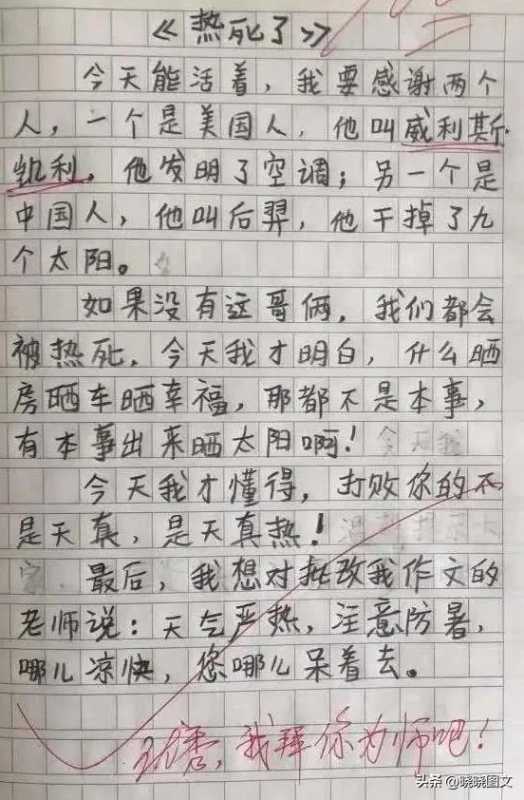 《热死了》
今天能活着，我要感谢两个
人，一个是美国人，他叫威利斯
凯利，他发明了空调；另一个是
中国人，他叫后羿，他干掉了九
个太阳。
如果没有这哥俩，我们都会
被热死，今天我才明白，什么晒
房晒车晒幸福，那都不是本事，
有本事出来晒太阳啊！
今天我才懂得，打败你的不
是天真，是天真热！
最后，我想对批改我作文的
老师说：天气严热，注意防暑，
哪儿凉快，您哪儿呆着去。
优秀，我拜你为师吧！
头条 @晓晓图文